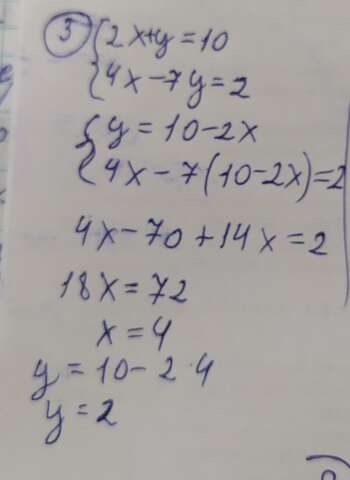 3 { 2x+y=10
{ 4x-7y=2
{ y=10-2x
{ 4x-7(10-2x)=2
4x-70+14x=2
18x=72
x=4
y=10-2·4
y=2